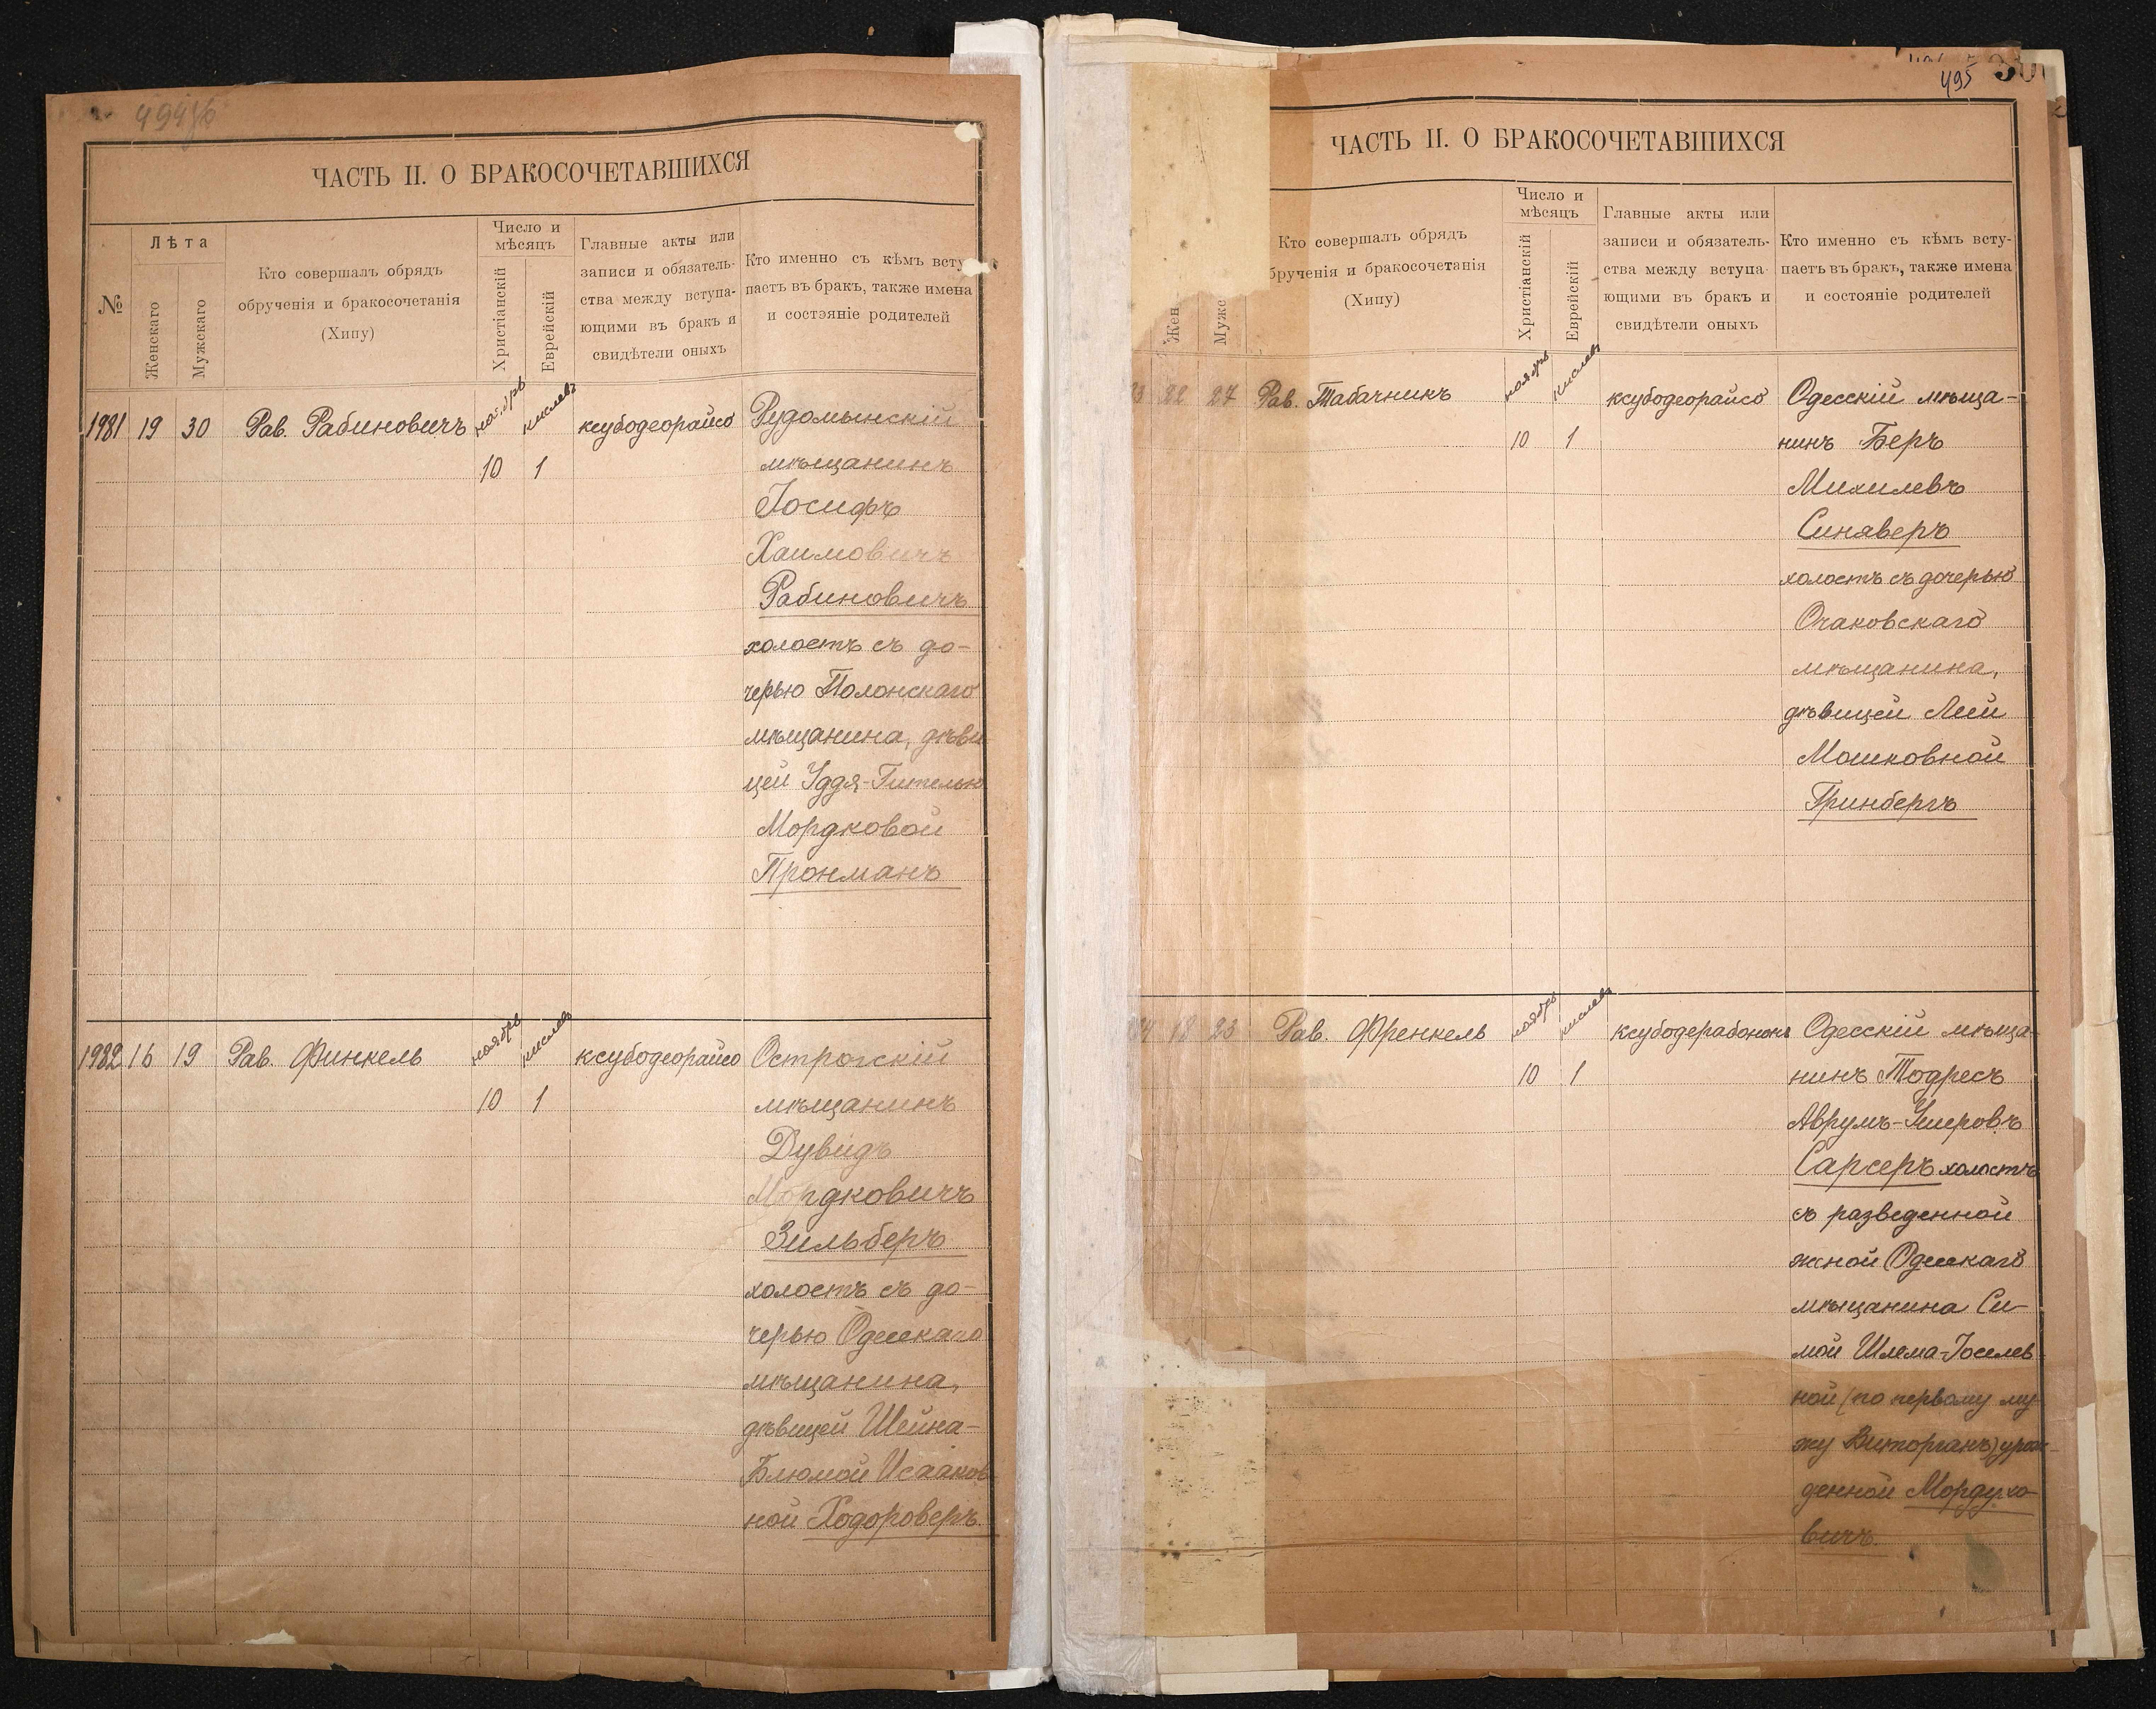 ЧАСТЬ II. О БРАКОСОЧЕТАВШИХСЯ
№
Лѣта
Женскаго
Мужскаго
Кто совершалъ обрядъ
обрученія и бракосочетанія
(Хипу)
Число и
мѣсяцъ
Христіанскій
Еврейскій
Главные акты или
записи и обязатель-
ства между вступа-
ющими въ бракъ и
свидѣтели оныхъ
Кто именно съ кѣмъ всту-
паетъ въ бракъ, также имена
и состояніе родителей
1981 19 30 Рав. Рабиновичъ ноябрь кислевъ ксубодеорайсо Рудомынскій
10 1 мѣщанинъ
Іосифъ
Хаимовичъ
Рабиновичъ
холостъ съ до-
черью Полонскаго
мѣщанина, дѣви
цей Уддя-Гителью
Мордковой
Пронманъ
1982 16 19 Рав. Финкель ноябрь кислевъ ксубодеорайсо Острогскій
10 1 мѣщанинъ
Дувидъ
Мордковичъ
Зильберъ
холостъ съ до-
черью Одесскаго
мѣщанина,
дѣвицей Шейна-
Блюмой Исааков
ной Ходороверъ.
495
ЧАСТЬ II. О БРАКОСОЧЕТАВШИХСЯ
Жен
Мужс
Кто совершалъ обрядъ
брученія и бракосочетанія
(Хипу)
Число и
мѣсяцъ
Христіанскій
Еврейскій
Главные акты или
записи и обязатель-
ства между вступа-
ющими въ бракъ и
свидѣтели оныхъ
Кто именно съ кѣмъ всту-
паетъ въ бракъ, также имена
и состояніе родителей
3 22 27 Рав. Табачникъ ноябрь кислевъ ксубодеорайсо Одесскій мѣща-
10 1 нинъ Беръ
Михилевъ
Синяверъ
холостъ съ дочерью
Очаковскаго
мѣщанина,
дѣвицей Леей
Мошковной
Гринбергъ
4 18 23 Рав. Френкель ноябрь кислевъ ксубодерабононъ Одесскій мѣща-
10 1 нинъ Тодресъ
Аврумъ-Ушеровъ
Сарсеръ холостъ
съ разведенной
женой Одесскаго
мѣщанина Си-
мой Шлема-Іоселев
ной (по первому му-
жу Виторганъ) урож-
денной Мордухо-
вичъ.